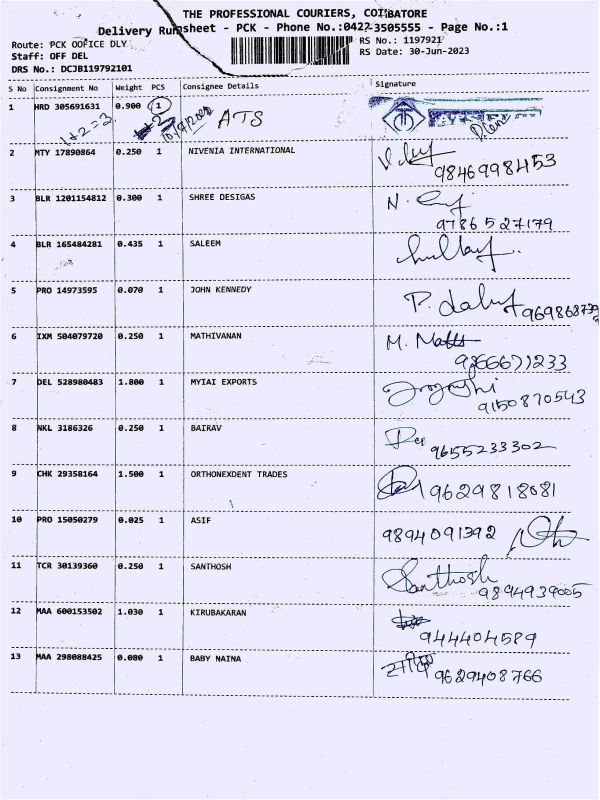 THE PROFESSIONAL COURIERS, COIMBATORE
Delivery Runsheet - PCK - Phone No.:0422-3505555 - Page No.:1
Route: PCK OOFICE DLY
RS No.: 1197921
Staff: OFF DEL
RS Date: 30-Jun-2023
DRS No.: DCJB119792101
S No Consignment No Weight PCS Consignee Details Signature
1 HRD 305691631 0.900 1
1+2=3 ATS
2 MTY 17890864 0.250 1 NIVENIA INTERNATIONAL
9846998453
3 BLR 1201154812 0.300 1 SHREE DESIGAS N.
9786527179
4 BLR 165484281 0.435 1 SALEEM
5 PRO 14973595 0.070 1 JOHN KENNEDY P.
6 IXM 504079720 0.250 1 MATHIVANAN M.
7 DEL 528980483 1.800 1 MYIAI EXPORTS
9150870543
8 NKL 3186326 0.250 1 BAIRAV
9655233302
9 CHK 29358164 1.500 1 ORTHONEXDENT TRADES 9629818081
10 PRO 15050279 0.025 1 ASIF 9894091392
11 TCR 30139360 0.250 1 SANTHOSH Santhosh
9894939005
12 MAA 600153502 1.030 1 KIRUBAKARAN
944404589
13 MAA 298088425 0.080 1 BABY NAINA 9629408766